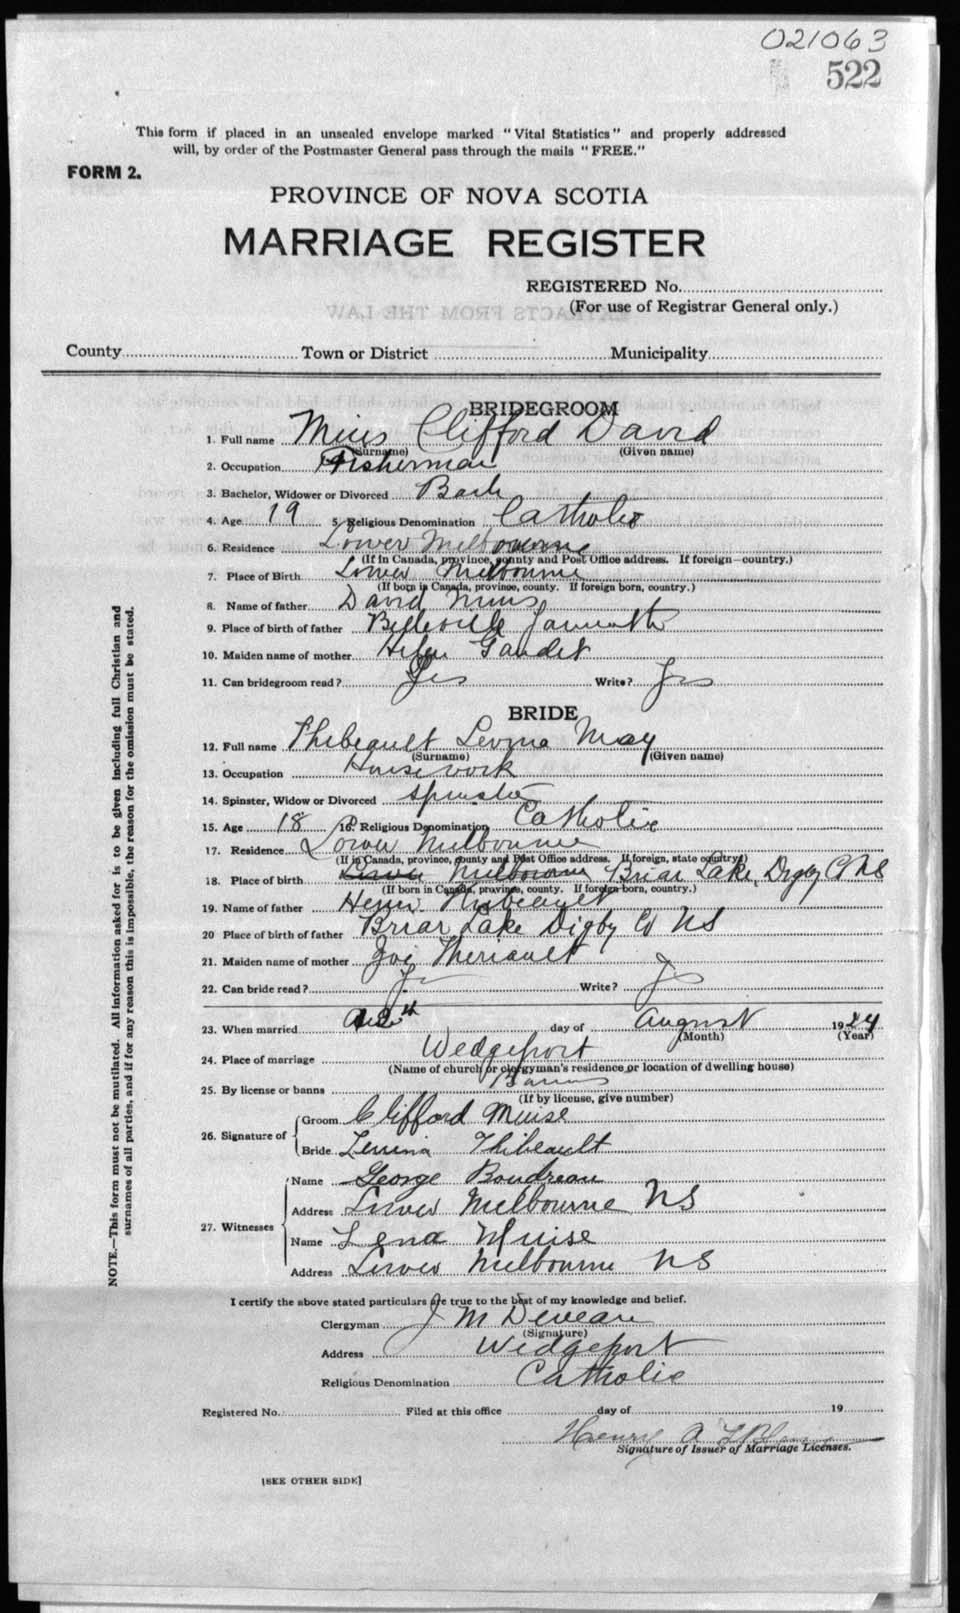 021063
522
This form if placed in an unsealed envelope marked "Vital Statistics" and properly addressed
will, by order of the Postmaster General pass through the mails "FREE."
FORM 2.
PROVINCE OF NOVA SCOTIA
MARRIAGE REGISTER
REGISTERED No.
(For use of Registrar General only.)
County Town or District Municipality
BRIDEGROOM
1. Full name Mius Clifford David
(Surname) (Given name)
2. Occupation Fisherman
3. Bachelor, Widower or Divorced Bach
4. Age 19 5. Religious Denomination Catholic
6. Residence Lower Melbourne
(If in Canada, province, county and Post Office address. If foreign—country.)
7. Place of Birth Lower Melbourne
(If born in Canada, province, county. If foreign born, country.)
8. Name of father David Mius
9. Place of birth of father Belleville Yarmouth
10. Maiden name of mother Gaudet
11. Can bridegroom read? Yes Write? Yes
BRIDE
12. Full name Thibeault May
(Surname) (Given name)
13. Occupation Housework
14. Spinster, Widow or Divorced Spinster
15. Age 18 16. Religious Denomination Catholic
17. Residence Lower Melbourne
(If in Canada, province, county and Post Office address. If foreign, state country.)
18. Place of birth Lower Melbourne Briar Lake, Digby Co NS
(If born in Canada, province, county. If foreign born, country.)
19. Name of father Thibeault
20 Place of birth of father Briar Lake Digby Co NS
21. Maiden name of mother Theriault
22. Can bride read? Yes Write? Yes
23. When married day of August 1924
(Month) (Year)
24. Place of marriage Wedgeport
(Name of church or clergyman's residence or location of dwelling house)
25. By license or banns Banns
(If by license, give number)
26. Signature of Groom Clifford Muise
Bride Thibeault
27. Witnesses
Name George Boudreau
Address Lower Melbourne NS
Name Lena Muise
Address Lower Melbourne NS
I certify the above stated particulars are true to the best of my knowledge and belief.
Clergyman J M Deveau
(Signature)
Address Wedgeport
Religious Denomination Catholic
Registered No. Filed at this office day of 19
Henry A LeBlanc
Signature of Issuer of Marriage Licenses.
[SEE OTHER SIDE]
NOTE.—This form must not be mutilated. All information asked for is to be given including full Christian and
surnames of all parties, and if for any reason this is impossible, the reason for the omission must be stated.